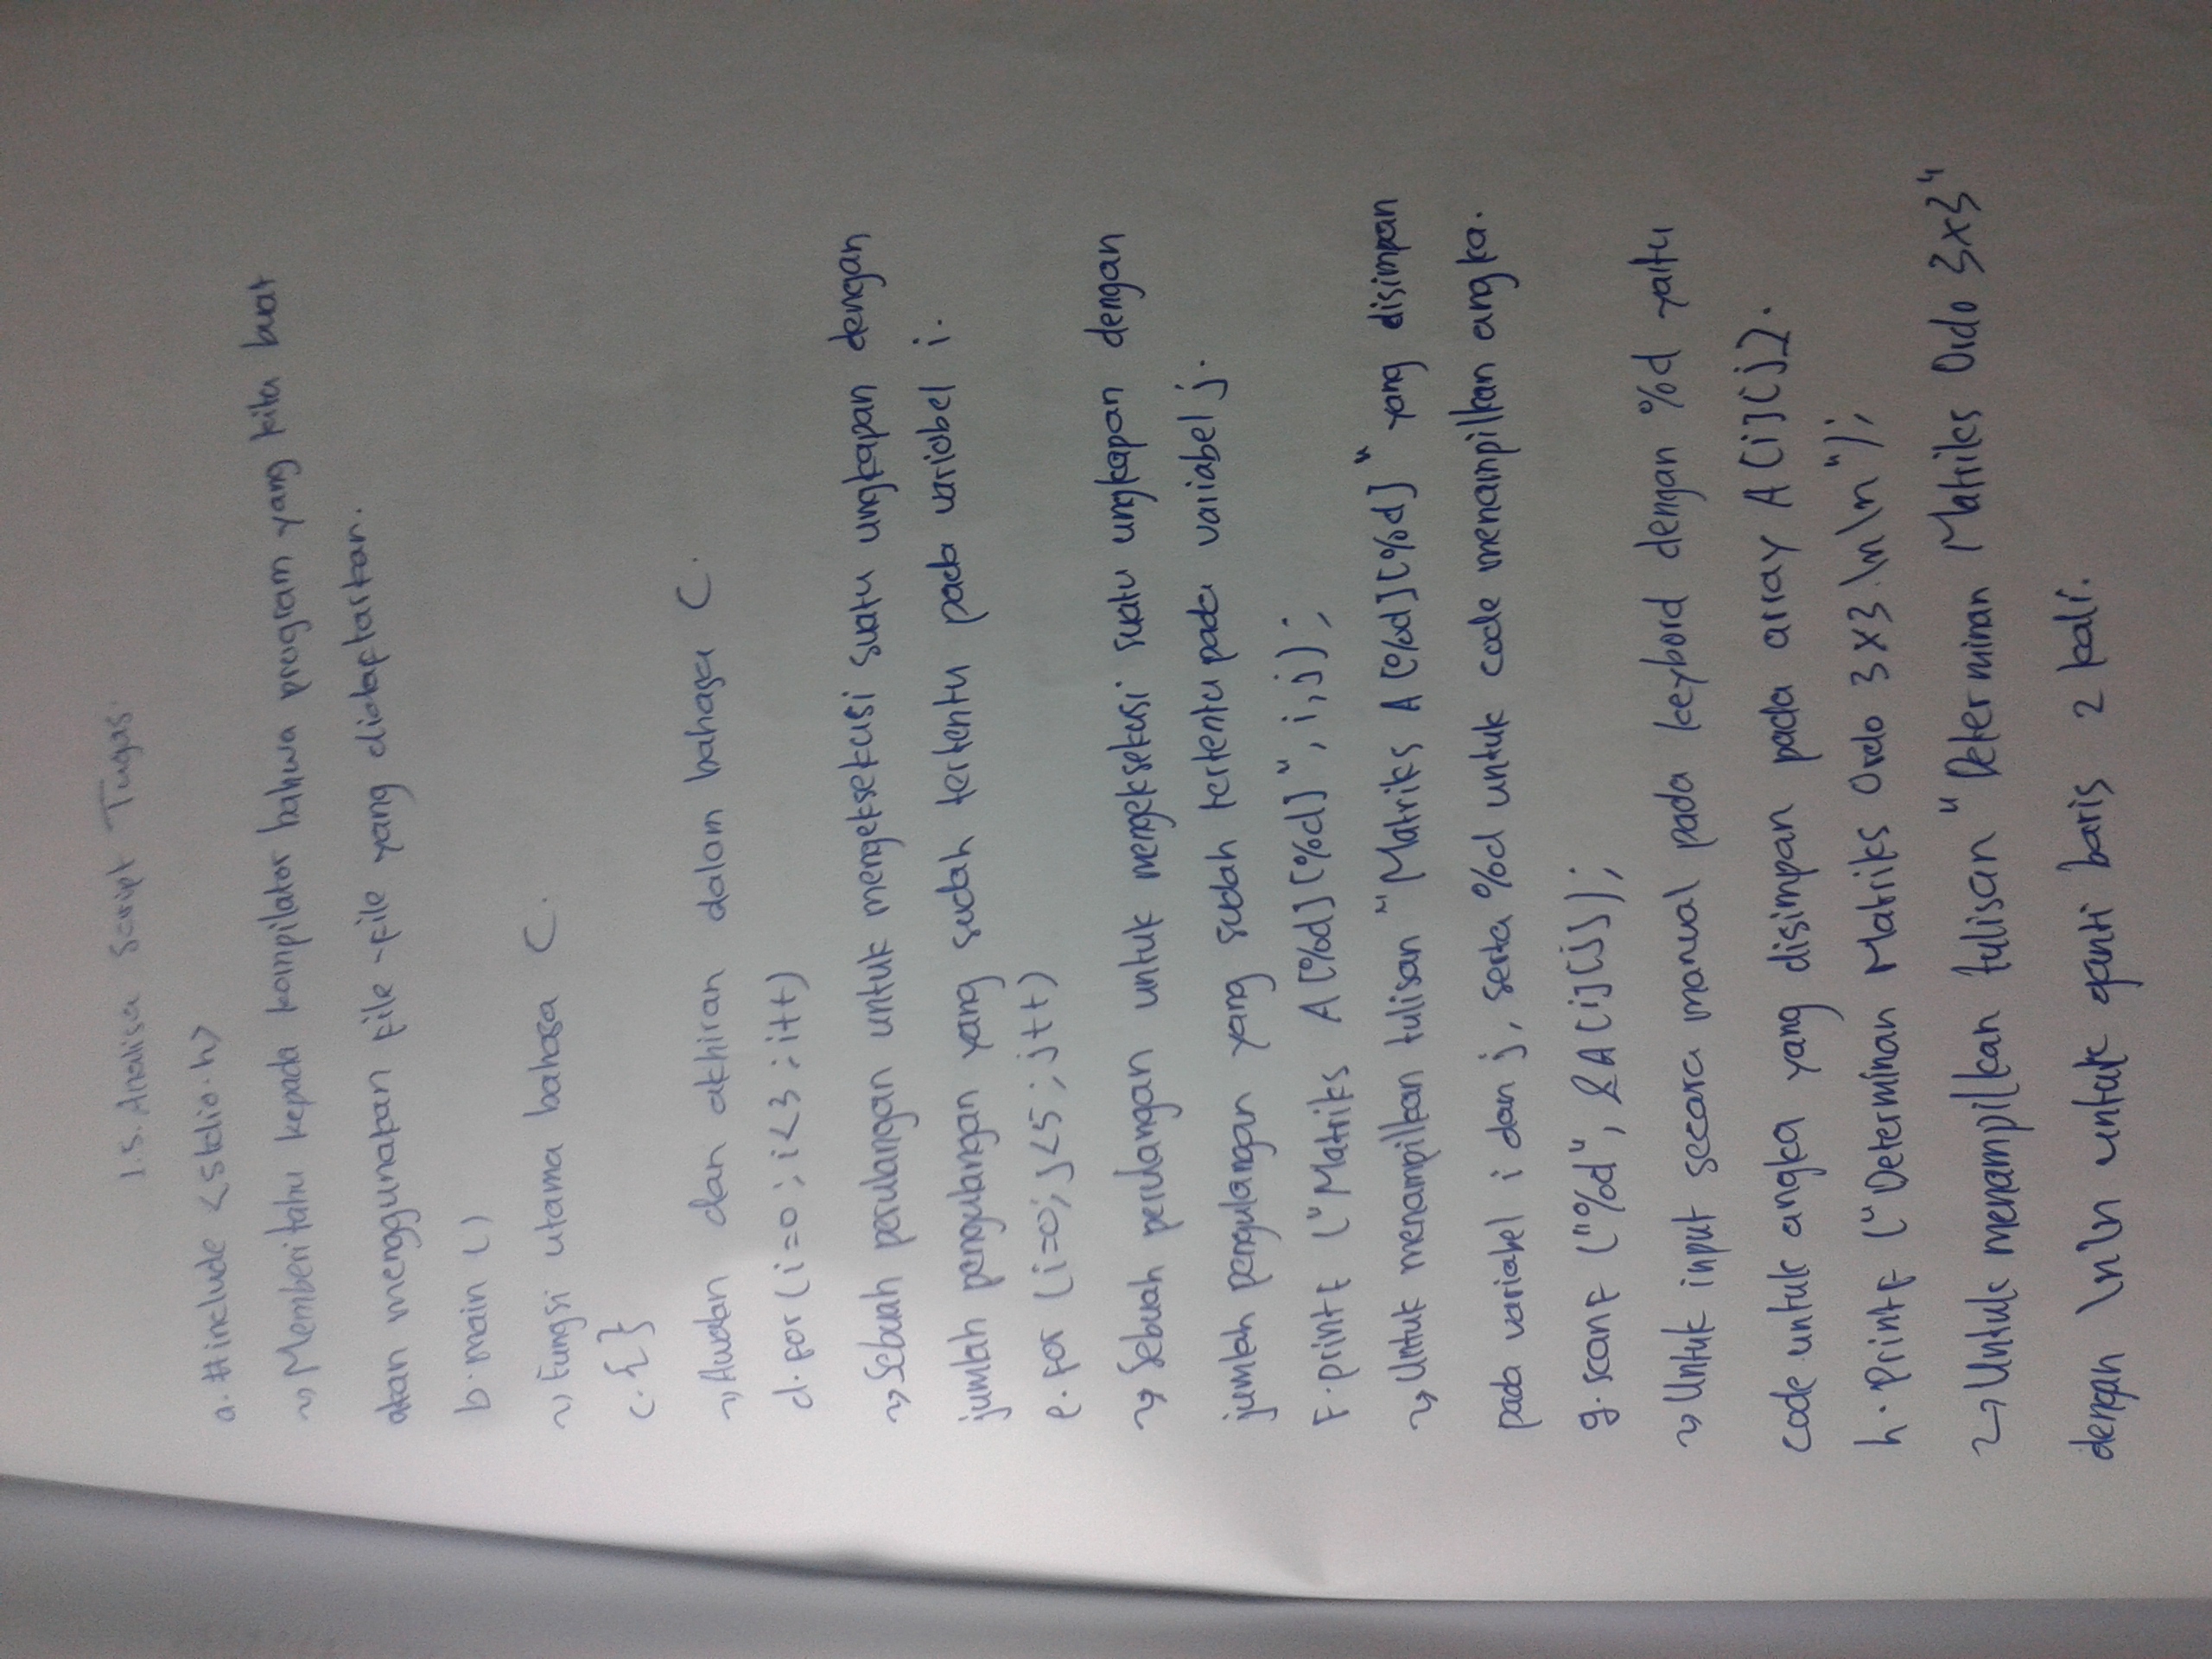 1.5. Analisa Script Tugas.
a. #include <stdio.h>
→ Memberitahu kepada kompilator bahwa program yang kita buat
akan menggunakan file-file yang didaftarkan.
b. main ()
→ Fungsi utama bahasa C.
c. { }
→ Awalan dan akhiran dalam bahasa C.
d. for (i=0 ; i<3 ; i++)
→ Sebuah perulangan untuk mengeksekusi suatu ungkapan dengan
jumlah pengulangan yang sudah tertentu pada variabel i.
e. for (i=0; j<5 ; j++)
→ Sebuah perulangan untuk mengeksekusi suatu ungkapan dengan
jumlah pengulangan yang sudah tertentu pada variabel j.
F. printf ("Matriks A[%d][%d]", i,j);
→ Untuk menampilkan tulisan "Matriks A[%d][%d]" yang disimpan
pada variabel i dan j, serta %d untuk code menampilkan angka.
g. scanf ("%d", &A[i][j]);
→ Untuk input secara manual pada keybord dengan %d yaitu
code untuk angka yang disimpan pada array A[i][j].
h. Printf ("Determinan Matriks Ordo 3x3 \n\n");
→ Untuk menampilkan tulisan "Determinan Matriks Ordo 3x3"
dengan \n\n untuk ganti baris 2 kali.